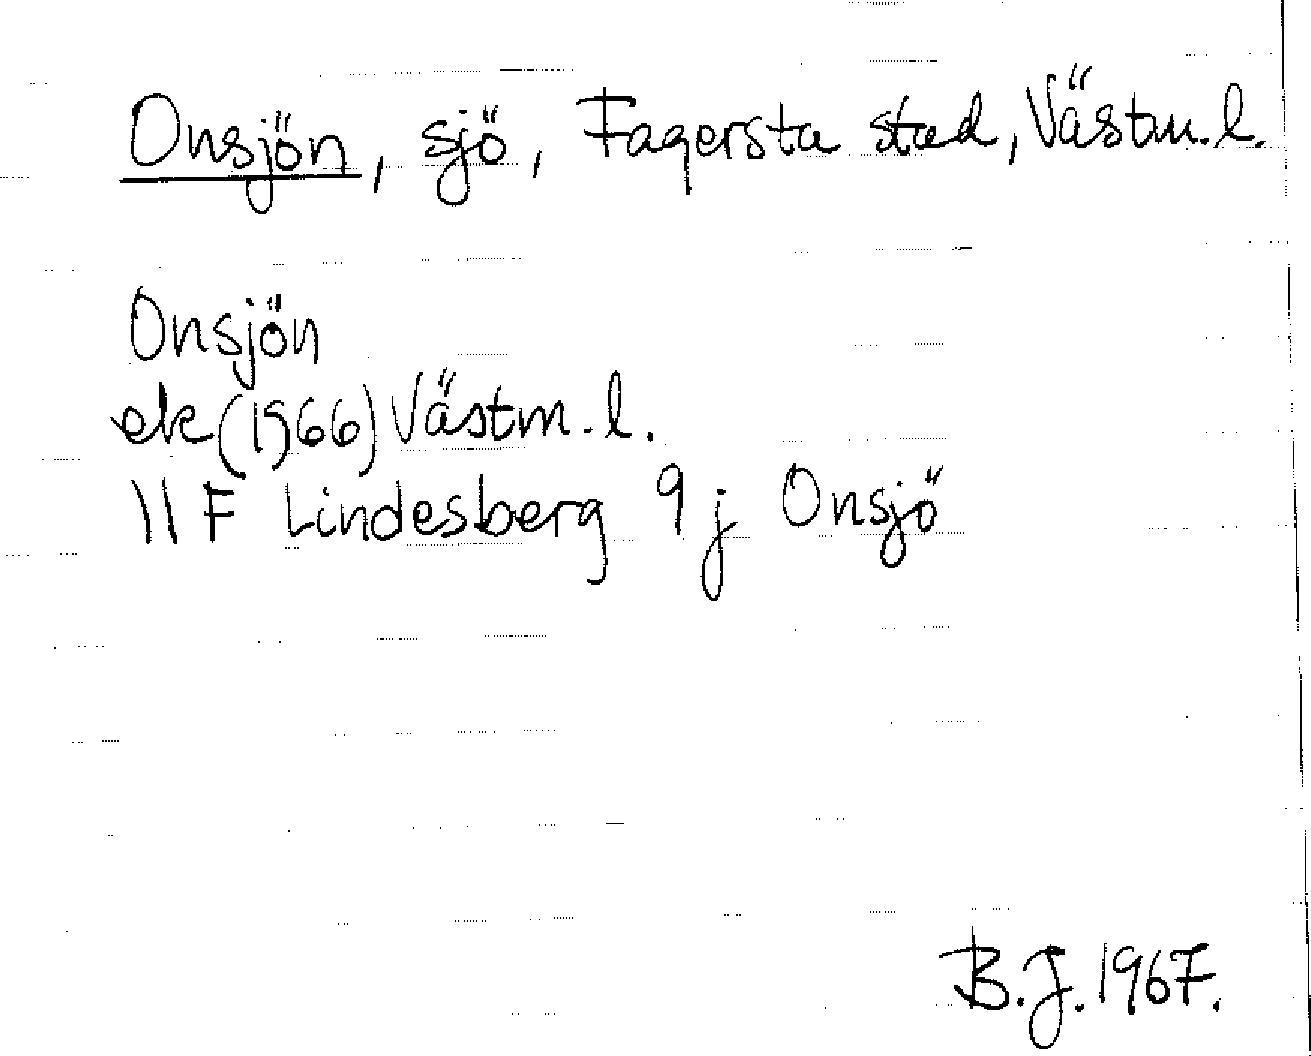 Onsjön, sjö, Fagersta stad, Västm. l.
Onsjön
ek (1966) Västm. l.
11 F Lindesberg 9 j Onsjö
B. J. 1967.